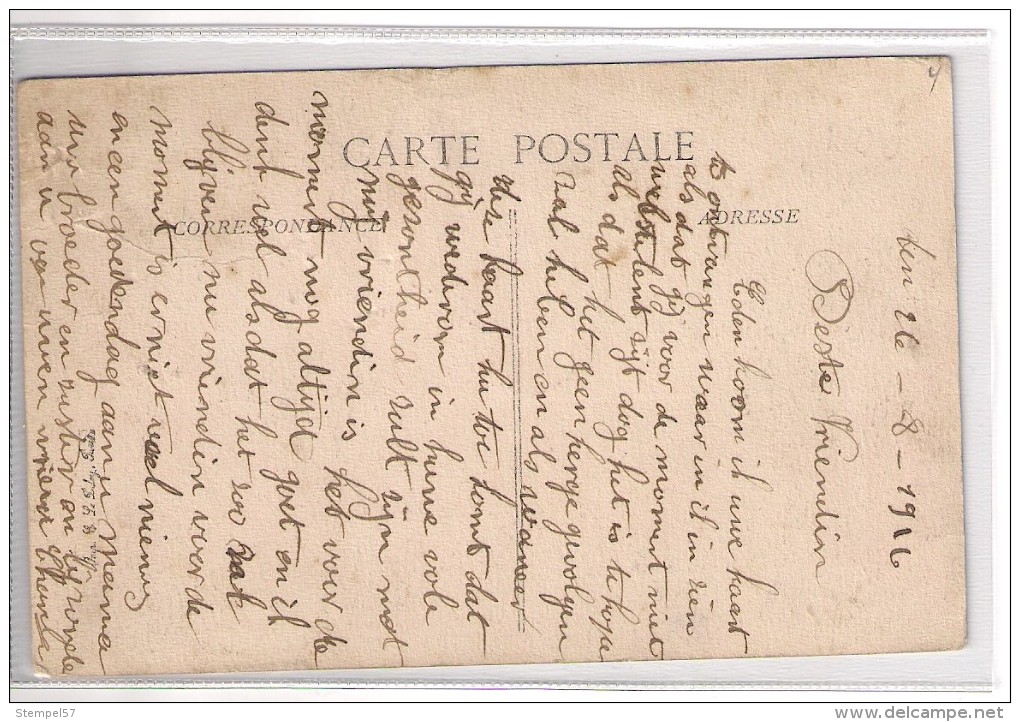 CARTE POSTALE
CORRESPONDANCE
ADRESSE
den 26-8-1916
Beste Vriendin
Eden noom ik uwe kaart
te ontvangen waar in ik in zien
als dat gij voor de moment niet
wel stelent zijt dog het is te hope
als dat het geen herge gevolgen
zal hebben en als waneer
dese kaart hu toe komt dat
gij wederom in huwe vole
gezontheid zult zijn met
mij vriendin is het voor de
moment nog altijd goet en ik
denk wel alsdat het zoo zal
blijven nu vriendin voor de
moment is er niet veel nieuws
en een goedendag aan u Mama
uw broeder en zuster en
aan u van uwen vriend
Stempel57
www.delcampe.net